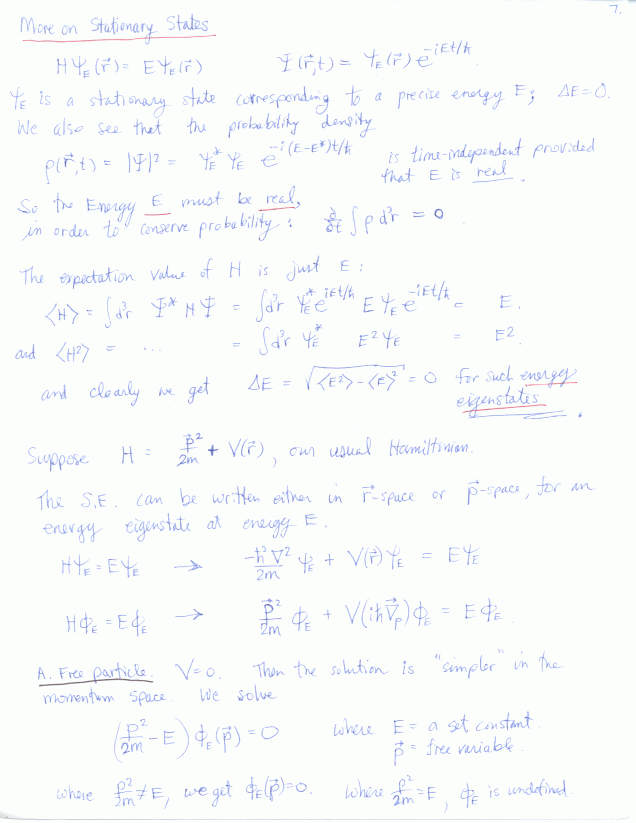 7.
More on Stationary States
Hψ_E(r⃗) = Eψ_E(r⃗)    Ψ(r⃗,t) = ψ_E(r⃗) e^{-iEt/ħ}.
ψ_E is a stationary state corresponding to a precise energy E; ΔE=0.
We also see that the probability density
ρ(r⃗,t) = |Ψ|² = ψ_E* ψ_E e^{-i(E-E*)t/ħ}    is time-independent provided
that E is real.
So the Energy E must be real,
in order to conserve probability: ∂/∂t ∫ρ d³r = 0.
The expectation value of H is just E:
⟨H⟩ = ∫d³r Ψ* H Ψ = ∫d³r ψ_E* e^{iEt/ħ} E ψ_E e^{-iEt/ħ} = E.
and ⟨H²⟩ = ... = ∫d³r ψ_E* E² ψ_E = E².
and clearly we get ΔE = √(⟨E²⟩-⟨E⟩²) = 0 for such energy
eigenstates.
Suppose H = p⃗²/2m + V(r⃗), our usual Hamiltonian.
The S.E. can be written either in r⃗-space or p⃗-space, for an
energy eigenstate at energy E.
Hψ_E = Eψ_E → -ħ²∇²/2m ψ_E + V(r⃗)ψ_E = Eψ_E
Hϕ_E = Eϕ_E → p⃗²/2m ϕ_E + V(iħ∇⃗_p)ϕ_E = Eϕ_E.
A. Free particle. V=0. Then the solution is "simpler" in the
momentum space. We solve
(p²/2m - E) ϕ_E(p⃗) = 0    where E = a set constant.
p⃗ = free variable.
where p²/2m ≠ E, we get ϕ_E(p⃗)=0. where p²/2m = E, ϕ_E is undefined.